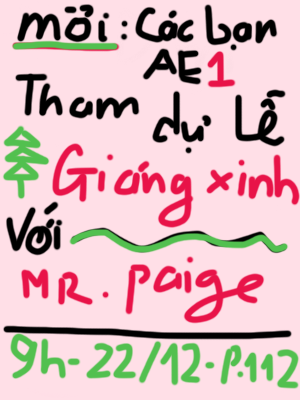 mời: Các bạn
AE1
Tham dự Lễ
Giáng xinh
Với
MR. paige
9h-22/12-P.112